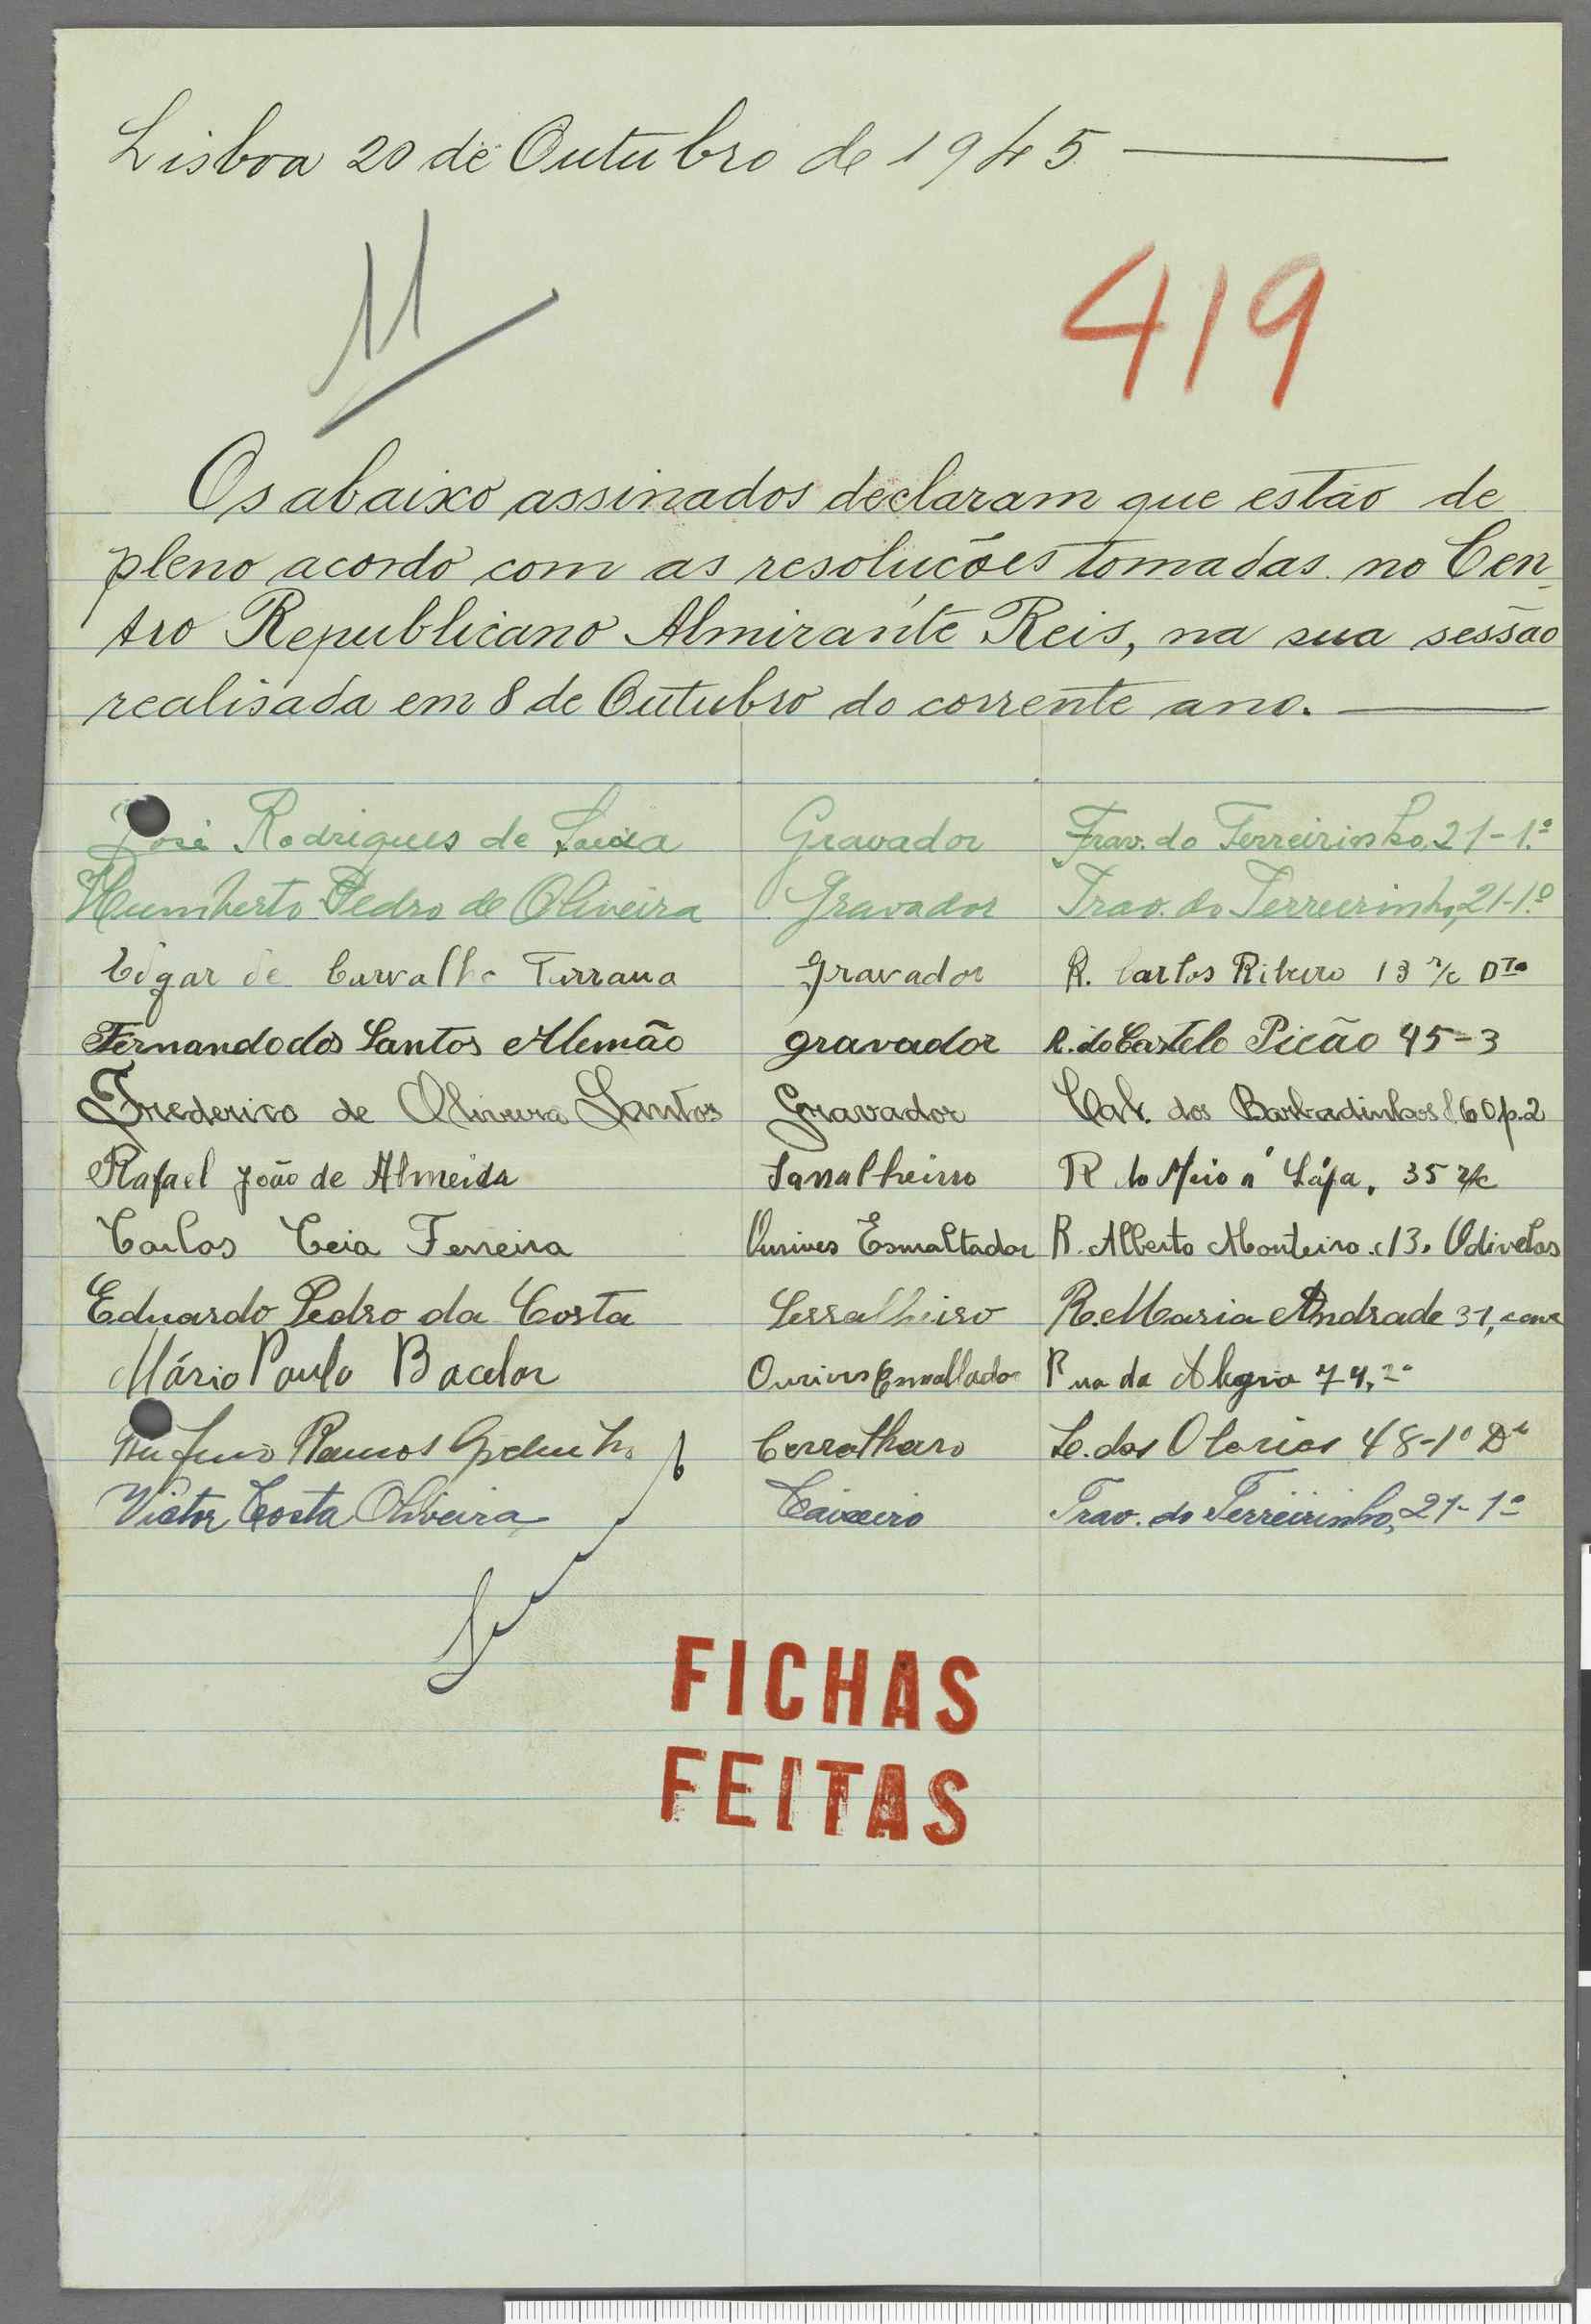 Lisboa 20 de Outubro de 1945
11
419
Os abaixo assinados declaram que estão de
pleno acordo com as resoluções tomadas no Cen-
tro Republicano Almirante Reis, na sua sessão
realisada em 8 de Outubro do corrente ano.
José Rodrigues de Gravador Trav. do Terreirinho, 21-1.º
Humberto Pedro de Oliveira Gravador Trav. do Terreirinho, 21-1.º
Edgar de Carvalho Gravador R. Carlos Ribeiro 13 r/c Dto
Fernando dos Santos Alemão gravador R. do Castelo Picão 45-3
Frederico de Oliveira Santos Gravador Calç. dos Barbadinhos 60 p.2
Rafael João de Almeida Sarralheiro R do Meio á Lápa, 35 r/c
Carlos Ceia Ferreira Ourives Esmaltador R. Alberto Monteiro 13. Odivelas
Eduardo Pedro da Costa Serralheiro R. Maria Andrade 31, cave
Mário Paulo Bacelar Ourives Esmaltador Rua da Alegria 74, 2º
Ramos Cerralharo dos Olarias 48-1º Dº
Victor Costa Oliveira Caixeiro Trav. do Terreirinho, 21-1º
FICHAS
FEITAS